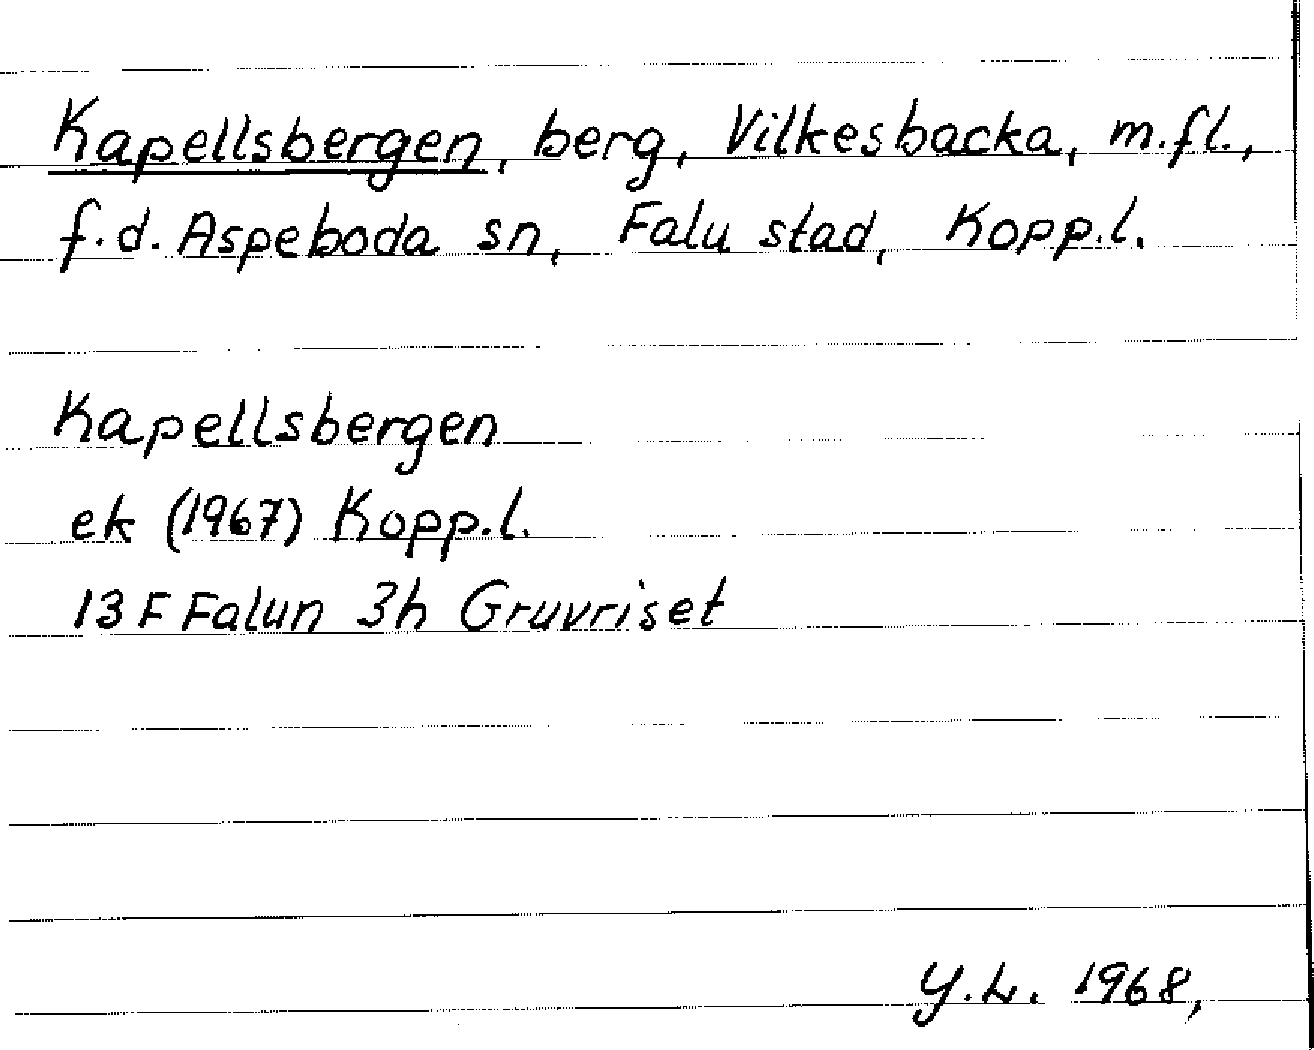 Kapellsbergen, berg, Vilkesbacka, m.fl.,
f.d. Aspeboda sn, Falu stad, Kopp.l.
Kapellsbergen
ek (1967) Kopp.l.
13 F Falun 3h Gruvriset
Y.L. 1968,